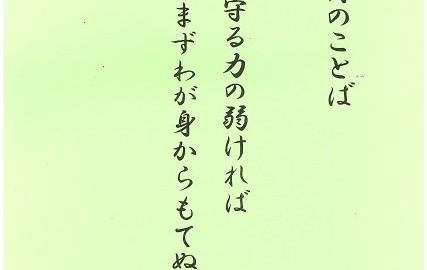 のことば
守る力の弱ければ
まずわが身からもてぬ